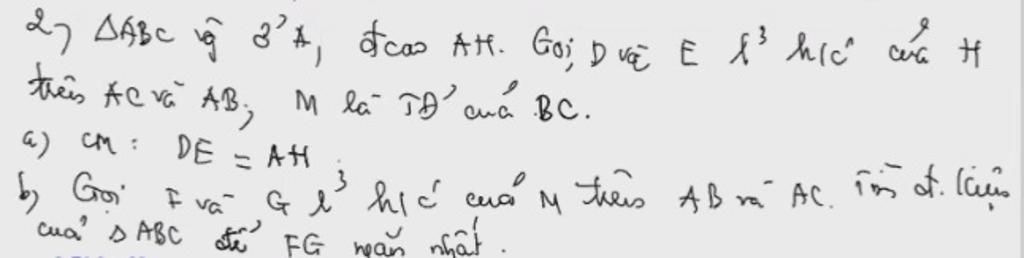 2, △ABC vg ở A, đcao AH. Gọi D và E l³ h/c của H
trên AC và AB, M là TĐ của BC.
a) CM: DE = AH.
b, Gọi F và G l³ h/c của M trên AB và AC. Tìm đ. kiện
của △ABC để FG ngắn nhất.